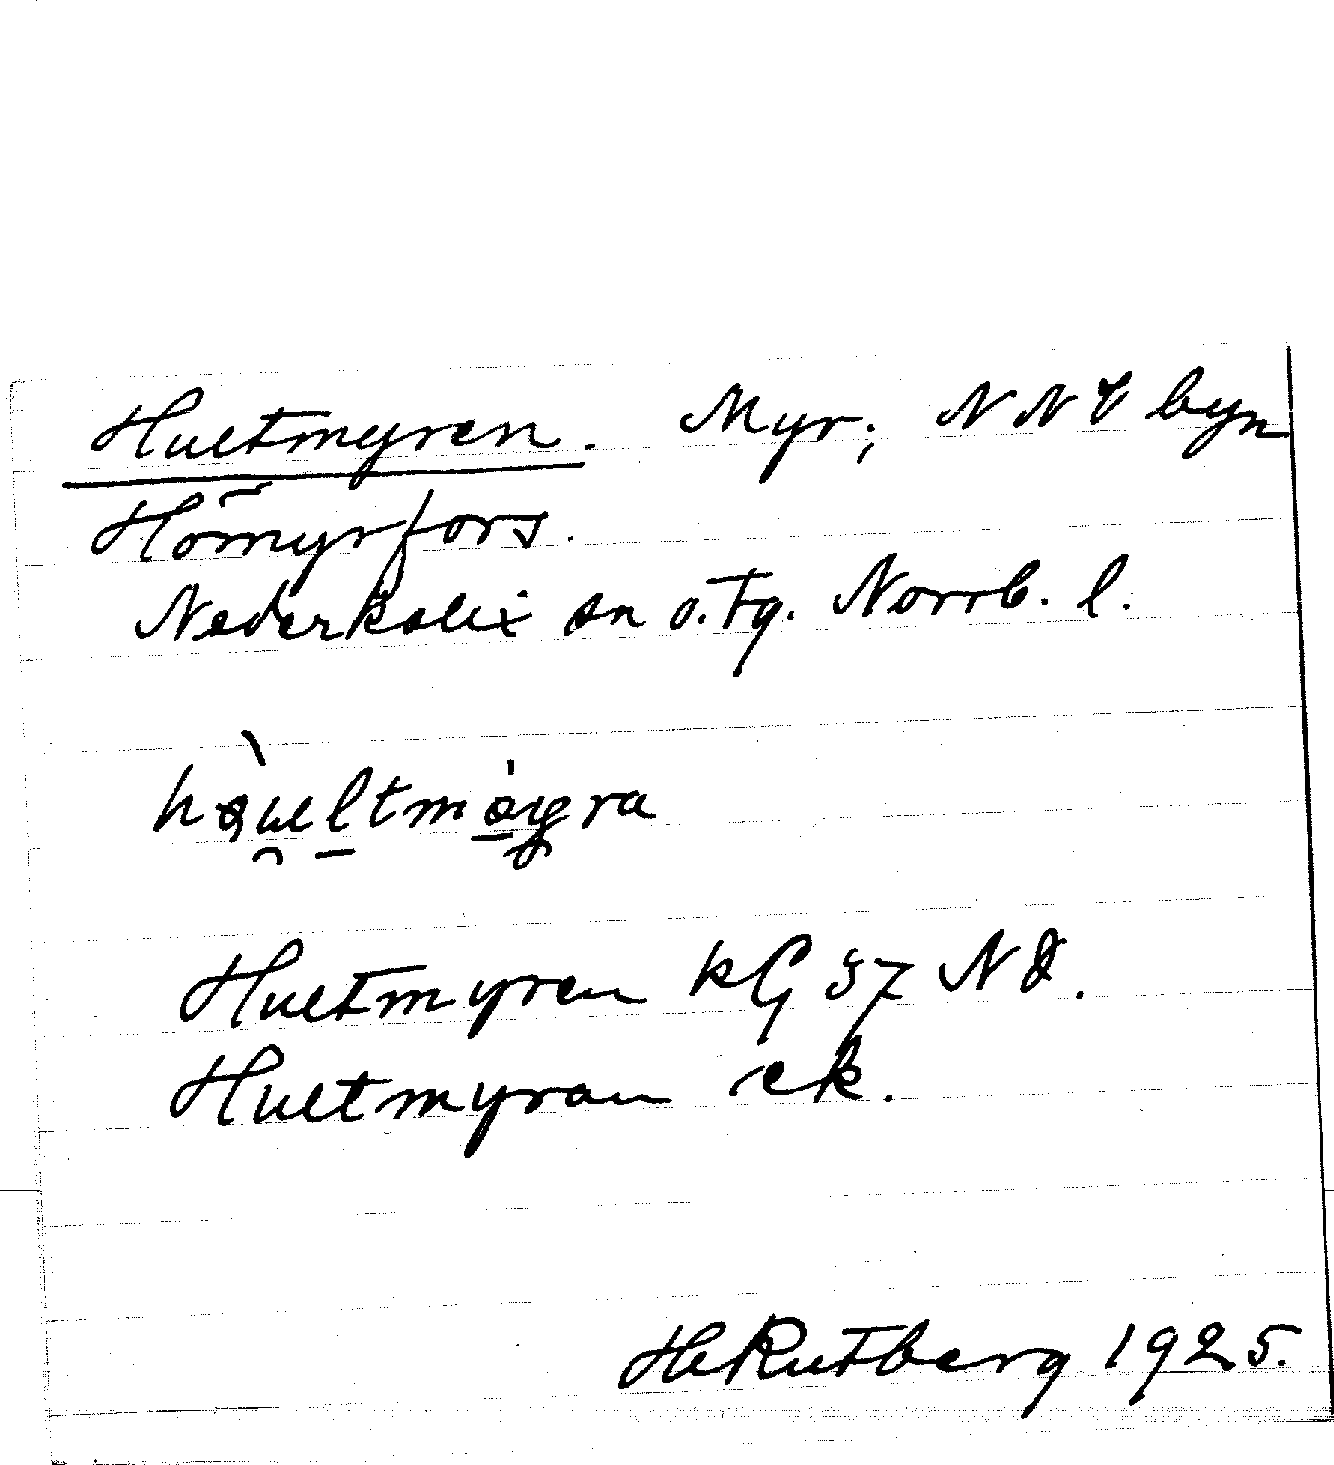 Hultmyren. Myr; NNV byn
Hömyrfors.
Nederkalix sn o. tg. Norrb. l.
Hultmyren kG 37 NO.
Hultmyran ek.
HeRutberg 1925.